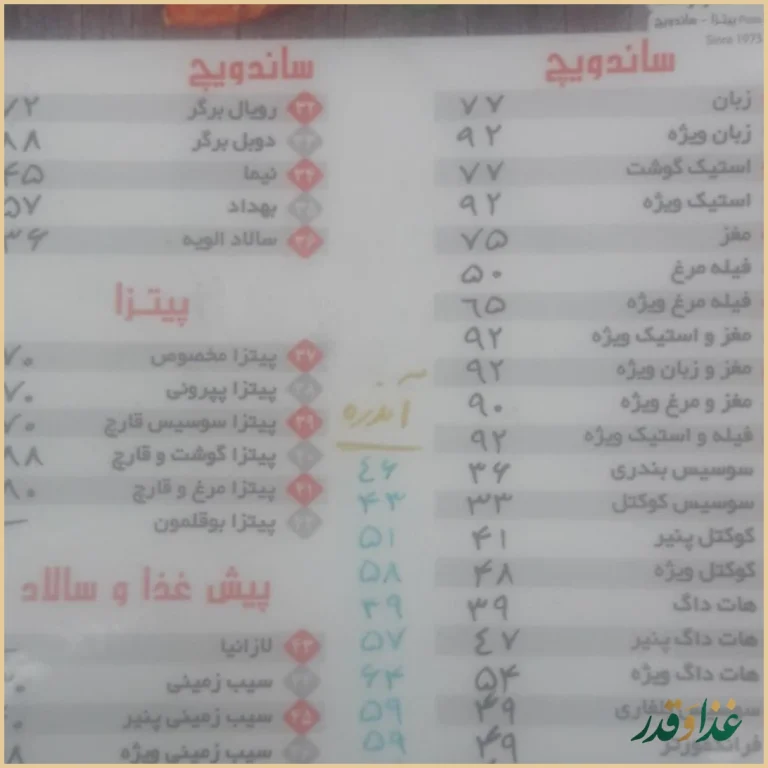 پیتزا - ساندویچ
Since 1973
ساندویچ
زبان ۷۷
زبان ویژه ۹۲
استیک گوشت ۷۷
استیک ویژه ۹۲
مغز ۷۵
فیله مرغ ۵۰
فیله مرغ ویژه ۶۵
مغز و استیک ویژه ۹۲
مغز و زبان ویژه ۹۲
مغز و مرغ ویژه ۹۰
فیله و استیک ویژه ۹۲
سوسیس بندری ۳۶
سوسیس کوکتل ۳۳
کوکتل پنیر ۴۱
کوکتل ویژه ۴۸
هات داگ ۳۹
هات داگ پنیر ۴۷
هات داگ ویژه ۵۴
۴۹
۴۹
آندره
۴۶
۴۳
۵۱
۵۸
۴۹
۵۷
۶۴
۵۹
۵۹
ساندویچ
۳۲ رویال برگر ۷۲
۳۳ دوبل برگر ۸۸
۳۴ نیما ۴۵
۳۵ بهداد ۵۷
۳۶ سالاد الویه ۳۶
پیتزا
۳۷ پیتزا مخصوص ۷۰
۳۸ پیتزا پپرونی ۷۰
۳۹ پیتزا سوسیس قارچ ۷۰
۴۰ پیتزا گوشت و قارچ ۸۸
۴۱ پیتزا مرغ و قارچ ۸۰
۴۲ پیتزا بوقلمون —
پیش غذا و سالاد
۴۳ لازانیا —
۴۴ سیب زمینی
۴۵ سیب زمینی پنیر
۴۶ سیب زمینی ویژه
غذا و قدر